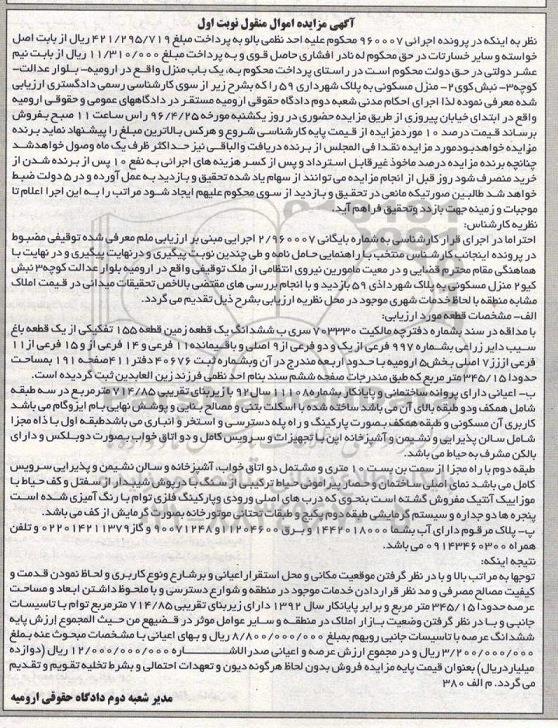 آگهی مزایده اموال منقول نوبت اول
نظر به اینکه در پرونده اجرائی ۹۶۰۰۰۷ محکوم علیه احد نظمی بالو به پرداخت مبلغ ۴۲۱/۲۹۵/۷۱۹ ریال از بابت اصل
خواسته و سایر خسارتات در حق محکوم له نادر افشاری حاصل قوی و به پرداخت مبلغ ۱۱/۳۱۰/۰۰۰ ریال از بابت نیم
عشر دولتی در حق دولت محکوم است در راستای پرداخت محکوم به، یک باب منزل واقع در ارومیه- بلوار عدالت-
کوچه ۳- نبش کوی ۲- منزل مسکونی به پلاک شهرداری ۵۹ را که بشرح زیر از سوی کارشناسی رسمی دادگستری ارزیابی
شده معرفی نموده لذا اجرای احکام مدنی شعبه دوم دادگاه حقوقی ارومیه مستقر در دادگاههای عمومی و حقوقی ارومیه
واقع در ابتدای خیابان پیروزی از طریق مزایده حضوری در روز یکشنبه مورخه ۹۶/۴/۲۵ راس ساعت ۱۱ صبح بفروش
برساند قیمت درصد ۱۰ مورد مزایده از قیمت پایه کارشناسی شروع و هرکس بالاترین مبلغ را پیشنهاد نماید برنده
مزایده خواهد بود مورد مزایده نقدا فی المجلس از برنده دریافت والباقی نیز حداکثر ظرف یک ماه وصول خواهد شد
چنانچه برنده مزایده درصد ماخوذ غیرقابل استرداد و پس از کسر هزینه های اجرائی به نفع ۱۰ پس از برنده شدن از
خرید منصرف شود روز قبل از انجام مزایده می توانند از سهام یاد شده تحقیق و بازدید به عمل آورده و در ۵ دولت ضبط
خواهد شد طالبین صورتیکه مانعی در تحقیق و بازدید از سوی محکوم علیهم ایجاد شود مراتب را به این اجرا اعلام تا
موجبات و زمینه جهت بازدد و تحقیق فراهم آید.
نظریه کارشناس:
احتراما در اجرای قرار کارشناسی به شماره بایگانی ۲/۹۶۰۰۰۷ اجرایی مبنی بر ارزیابی ملم معرفی شده توقیفی مضبوط
در پرونده اینجانب کارشناس منتخب با راهنمایی حامل نامه و طی چندین نوبت پیگیری و درنهایت پیگیری و در نهایت با
هماهنگی مقام محترم قضایی و در معیت مامورین نیروی انتظامی از ملک توقیفی واقع در ارومیه بلوار عدالت کوچه ۳ نبش
کیو ۲ منزل مسکونی به پلاک شهرداذی ۵۹ بازدید و با انجام بررسی های مقتضی بالاخص تحقیقات میدانی در قیمت املاک
مشابه منطقه با لحاظ خدمات شهری موجود در محل نظریه ارزیابی بشرح ذیل تقدیم می گردد.
الف- مشخصات قطعه مورد ارزیابی:
با مداقه در سند بشماره دفترچه مالکیت ۷۰۳۳۳۰ سری ب ششدانگ یک قطعه زمین قطعه ۱۵۵ تفکیکی از یک قطعه باغ
سیب دایر زراعی بشماره ۹۹۷ فرعی از یک و دو فرعی از ۹ اصلی و باقیمانده ۱۱ فرعی و ۱۴ فرعی از و ۱۵ فرعی از ۱۱
فرعی اززز ۷ اصلی بخش ۵ ارومیه با حدود اربعه مندرج در آن وبشماره ثبت ۴۰۶۷۶ دفتر ۴۱۱ صفحه ۱۹۱ بمساحت
حدودا ۳۴۵/۱۵ متر مربع که طبق مندرجات صفحه ششم سند بنام احد نظمی فرزند زین العابدین ثبت گردیده است.
ب- اعیانی دارای پروانه ساختمانی و پایانکار بشماره ۱۱۱۰۸ سال ۹۲ با زیربنای تقریبی ۷۱۴/۸۵ مترمربع در سه طبقه
شامل همکف ودو طبقه بالای آن می باشد ساخته شده با اسکلت بتنی و مصالح بنایی و پوشش نهایی بام ایزوگام می باشد
کاربری آن مسکونی و طبقه همکف بصورت پارکینگ و راه پله دسترسی و استخر و انباری می باشد طبقه اول با ذاه مجزا
شامل سالن پذیرایی و نشیمن و آشپزخانه اپن با تجهیزات و سرویس کامل و دو اتاق خواب بصورت دوبلکس و دارای
بالکن مشرف به حیاط می باشد.
طبقه دوم با راه مجزا از سمت بن بست ۱۰ متری و مشتمل دو اتاق خواب، آشپزخانه و سالن نشیمن و پذیرایی سرویس
کامل می باشد نمای اصلی ساختمان و حصار پیرامونی حیاط ترکیبی از سنگ با درپوش شیبدار از سفتل و کف حیاط با
موزاییک آنتیک مفروش گشته است بنحوی که درب های اصلی ورودی و پارکینگ فلزی توام با رنگ آمیزی شده است
پنجره ها دو جداره و سیستم گرمایشی طبقه دوم پکیج و طبقات تحتانی موتورخانه بصورت گرمایش از کف می باشد.
پ- پلاک مرقوم دارای آب بشما ۱۴۴۲۰۱۸۰۰۰ و برق ۱۱۲۰۴۶۰۰ و ۹۰۰۷۱۲۴۸ و گاز ۰۲۲۰۱۴۲۱۱۳۷۹ و تلفن
همراه ۰۹۱۴۳۴۶۰۳۰۰ می باشد.
نتیجه اینکه:
توجها به مراتب بالا و با در نظر گرفتن موقعیت مکانی و محل استقرار اعیانی و برشارع ونوع کاربری و لحاظ نمودن قدمت و
کیفیت مصالح مصرفی و مد نظر قراردادن خدمات موجود در منطقه و شوارع دسترسی و با ملحوظ داشتن ابعاد و مساحت
عرصه حدودا ۳۴۵/۱۵ متر مربع و برابر پایانکار سال ۱۳۹۲ دارای زیربنای تقریبی ۷۱۴/۸۵ مترمربع توام با تاسیسات
جانبی و با در نظر گرفتن وضعیت بازار املاک در منطقه و سایر عوامل موثر در قضیه من حیث المجموع ارزش پایه
ششدانگ عرصه با تاسیسات جانبی رویهم بمبلغ ۸/۸۰۰/۰۰۰/۰۰۰ ریال و بهای اعیانی با مشخصات مبحوث عنه بمبلغ
۳/۲۰۰/۰۰۰/۰۰۰ ریال و در مجموع ارزش عرصه و اعیانی صدرالاشاره ۱۲/۰۰۰/۰۰۰/۰۰۰ ریال (دوازده
میلیاردریال) بعنوان قیمت پایه مزایده فروش بدون لحاظ هرگونه دیون و تعهدات احتمالی و بشرط تخلیه تقویم و تقدیم
می گردد. م الف ۳۸۰
مدیر شعبه دوم دادگاه حقوقی ارومیه